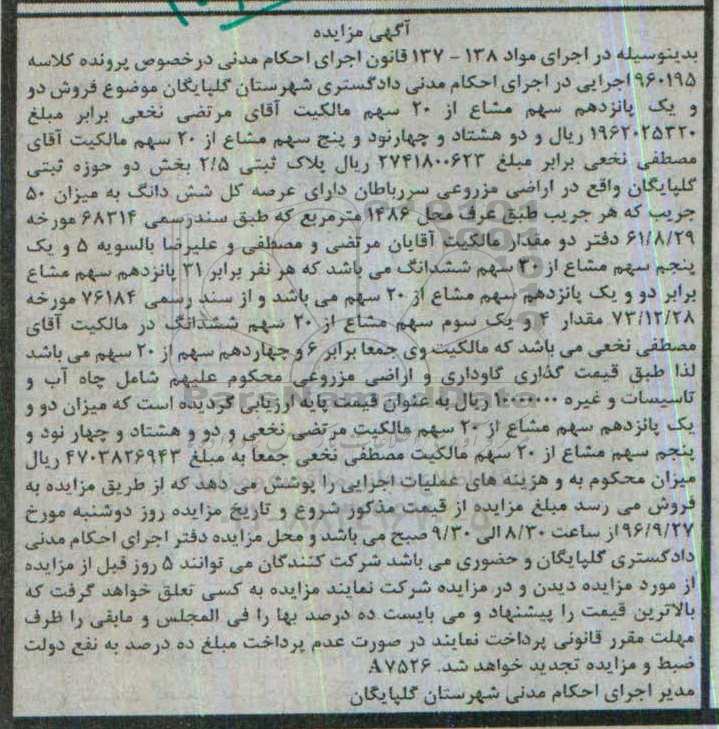 آگهی مزایده
بدینوسیله در اجرای مواد ۱۳۸ - ۱۳۷ قانون اجرای احکام مدنی درخصوص پرونده کلاسه
۹۶۰۱۹۵ اجرایی در اجرای احکام مدنی دادگستری شهرستان گلپایگان موضوع فروش دو
و یک پانزدهم سهم مشاع از ۲۰ سهم مالکیت آقای مرتضی نخعی برابر مبلغ
۱۹۶۲۰۲۵۳۲۰ ریال و دو هشتاد و چهارنود و پنج سهم مشاع از ۲۰ سهم مالکیت آقای
مصطفی نخعی برابر مبلغ ۲۷۴۱۸۰۰۶۲۳ ریال پلاک ثبتی ۲/۵ بخش دو حوزه ثبتی
گلپایگان واقع در اراضی مزروعی سررباطان دارای عرصه کل شش دانگ به میزان ۵۰
جریب که هر جریب طبق عرف محل ۱۴۸۶ مترمربع که طبق سندرسمی ۶۸۳۱۴ مورخه
۶۱/۸/۲۹ دفتر دو مقدار مالکیت آقایان مرتضی و مصطفی و علیرضا بالسویه ۵ و یک
پنجم سهم مشاع از ۳۰ سهم ششدانگ می باشد که هر نفر برابر ۳۱ پانزدهم سهم مشاع
برابر دو و یک پانزدهم سهم مشاع از ۲۰ سهم می باشد و از سند رسمی ۷۶۱۸۴ مورخه
۷۳/۱۲/۲۸ مقدار ۴ و یک سوم سهم مشاع از ۲۰ سهم ششدانگ در مالکیت آقای
مصطفی نخعی می باشد که مالکیت وی جمعا برابر ۶ و چهاردهم سهم از ۲۰ سهم می باشد
لذا طبق قیمت گذاری گاوداری و اراضی مزروعی محکوم علیهم شامل چاه آب و
تاسیسات و غیره ریال به عنوان قیمت پایه ارزیابی گردیده است که میزان دو و
یک پانزدهم سهم مشاع از ۲۰ سهم مالکیت مرتضی نخعی و دو و هشتاد و چهار نود و
پنجم سهم مشاع از ۲۰ سهم مالکیت مصطفی نخعی جمعاً به مبلغ ۴۷۰۳۸۲۶۹۴۳ ریال
میزان محکوم به و هزینه های عملیات اجرایی را پوشش می دهد که از طریق مزایده به
فروش می رسد مبلغ مزایده از قیمت مذکور شروع و تاریخ مزایده روز دوشنبه مورخ
۹۶/۹/۲۷ از ساعت ۸/۳۰ الی ۹/۳۰ صبح می باشد و محل مزایده دفتر اجرای احکام مدنی
دادگستری گلپایگان و حضوری می باشد شرکت کنندگان می توانند ۵ روز قبل از مزایده
از مورد مزایده دیدن و در مزایده شرکت نمایند مزایده به کسی تعلق خواهد گرفت که
بالاترین قیمت را پیشنهاد و می بایست ده درصد بها را فی المجلس و مابقی را ظرف
مهلت مقرر قانونی پرداخت نمایند در صورت عدم پرداخت مبلغ ده درصد به نفع دولت
ضبط و مزایده تجدید خواهد شد. ۸۷۵۲۶
مدیر اجرای احکام مدنی شهرستان گلپایگان